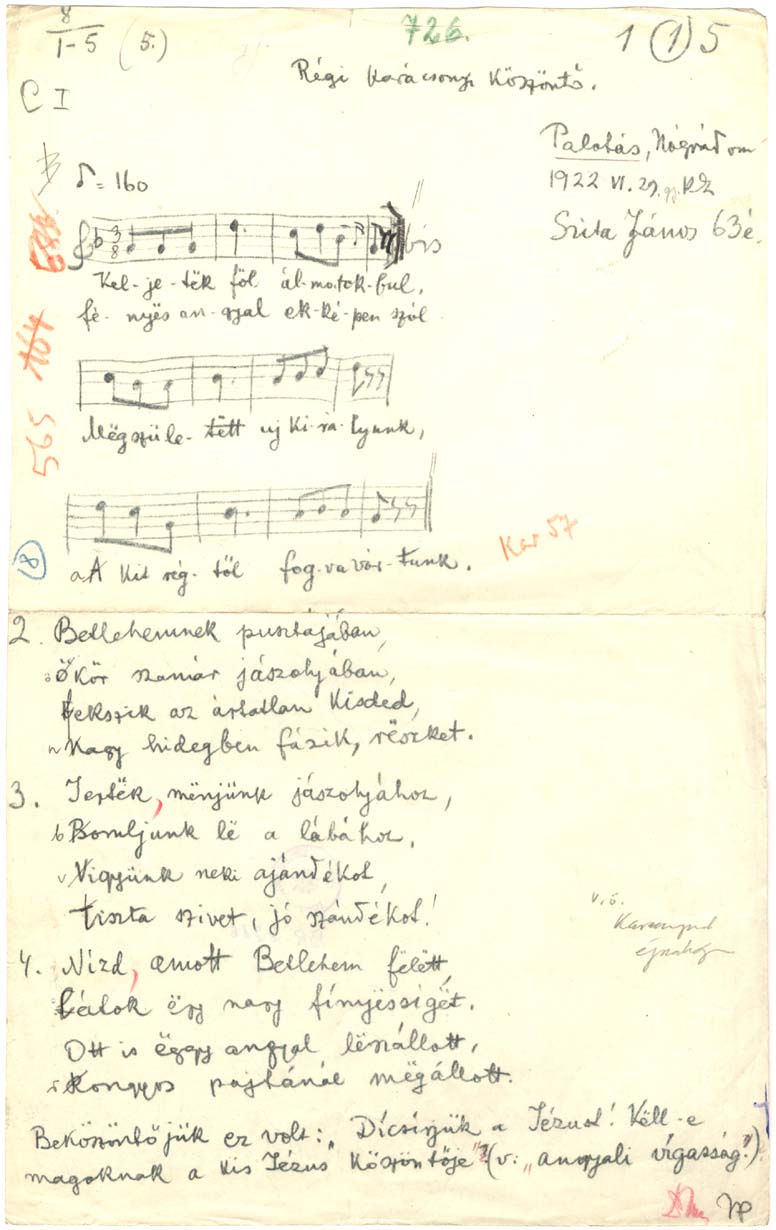 8
1-5 (5.)
726.
1 1 5
Régi Karácsonyi Köszöntő.
C I
Palotás, Nógrád m
1922 VI. 29. gy. KZ
Szita János 63é.
= 160
3
8
bis
Kel-je-tëk föl ál-mo-tok-bul,
fé-nyës an-gyal ek-ké-pen szól
565 164
Mëgszüle-tëtt uj Ki-rá-lyunk,
8
aA kit rég-től fog-va vár-tunk.
Kar 57
2. Betlehemnek pusztájában,
öÖkör szamár jászolyában,
fekszik az ártatlan kisded,
nNagy hidegben fázik, rëszket.
3. Jertëk, mënjünk jászolyához,
bBoruljunk lë a lábához.
vVigyünk neki ajándékot,
tiszta szivet, jó szándékot!
v.ö.
Karácsonynak
éjszakáján
4. Nízd, amott Betlehem fëlëtt,
Látok ëgy nagy fínyëssigët.
Ott is ëggy angyal lëszállott,
rRongyos pajtánál mëgállott.
Beköszöntőjük ez volt: "Dícsírjük a Jézust! Këll-e
magoknak a Kis Jézus Köszöntője"? (v: "angyali vígasság?")